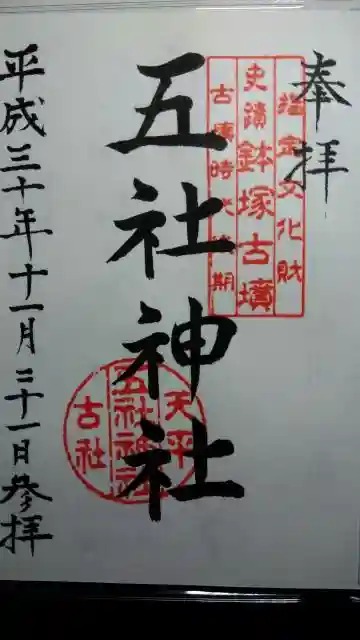 奉拝
指定文化財
史蹟鉢塚古墳
古墳時代後期
五社神社
天平
五社神社
古社
平成三十年十一月二十一日参拝